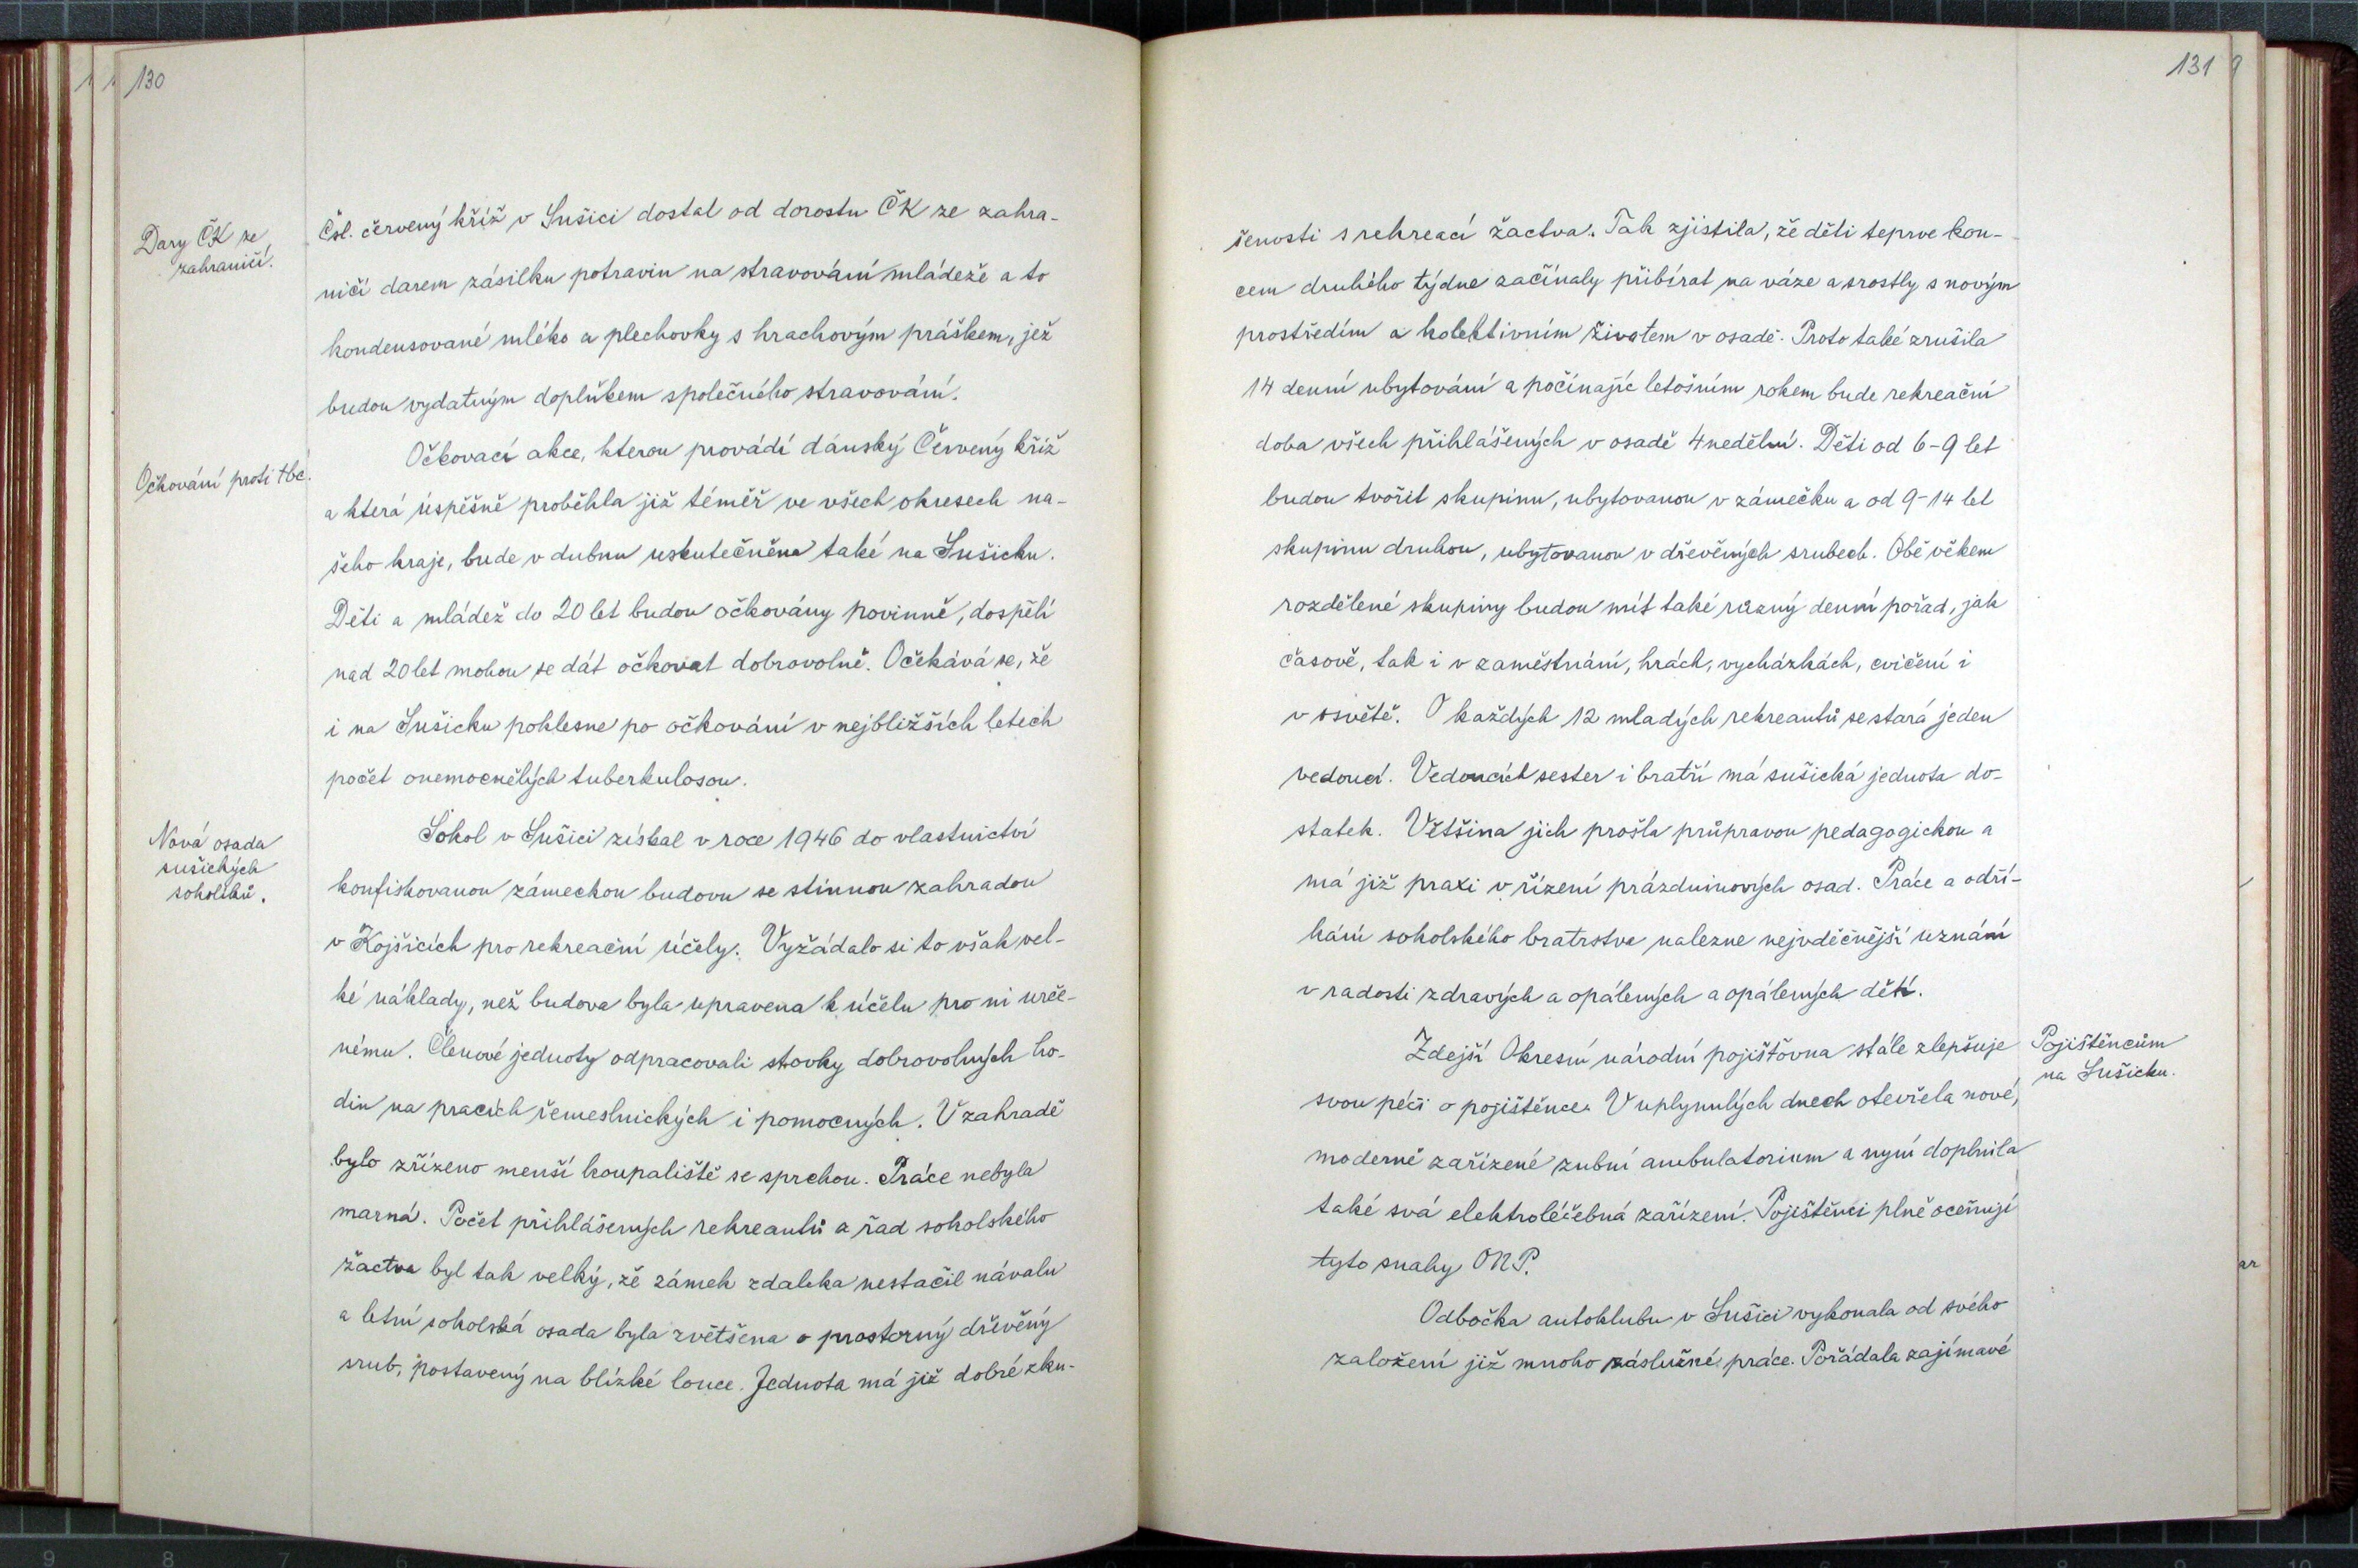 130
Dary ČK ze
zahraničí.
Čsl. červený kříž v Sušici dostal od dorostu ČK ze zahra-
ničí darem zásilku potravin na stravování mládeže a to
kondensované mléko a plechovky s hrachovým práškem, jež
budou vydatným doplňkem společného stravování.
Očkování proti tbc.
Očkovací akce, kterou provádí dánský Červený kříž
a která úspěšně proběhla již téměř ve všech okresech na-
šeho kraje, bude v dubnu uskutečněna také na Sušicku.
Děti a mládež do 20 let budou očkovány povinně, dospělí
nad 20 let mohou se dát očkovat dobrovolně. Očekává se, že
i na Sušicku poklesne po očkování v nejbližších letech
počet onemocnělých tuberkulosou.
Nová osada
sušických
sokolíků.
Sokol v Sušici získal v roce 1946 do vlastnictví
konfiskovanou zámeckou budovu se stinnou zahradou
v Kojšicích pro rekreační účely. Vyžádalo si to však vel-
ké náklady, než budova byla upravena k účelu pro ni urče-
nému. Členové jednoty odpracovali stovky dobrovolných ho-
din na pracích řemeslnických i pomocných. V zahradě
bylo zřízeno menší koupaliště se sprchou. Práce nebyla
marná. Počet přihlášených rekreantů a řad sokolského
žactva byl tak velký, že zámek zdaleka nestačil návalu
a letní sokolská osada byla zvětšena o prostorný dřevěný
srub, postavený na blízké louce. Jednota má již dobré zku-
131
šenosti s rekreací žactva. Tak zjistila, že děti teprve kon-
cem druhého týdne začínaly přibírat na váze a srostly s novým
prostředím a kolektivním životem v osadě. Proto také zrušila
14 denní ubytování a počínajíc letošním rokem bude rekreační
doba všech přihlášených v osadě 4 nedělní. Děti od 6-9 let
budou tvořit skupinu, ubytovanou v zámečku a od 9-14 let
skupinu druhou, ubytovanou v dřevěných srubech. Obě věkem
rozdělené skupiny budou mít také různý denní pořad, jak
časově, tak i v zaměstnání, hrách, vycházkách, cvičení i
v osvětě. O každých 12 mladých rekreantů se stará jeden
vedoucí. Vedoucích sester i bratří má sušická jednota do-
statek. Většina jich prošla průpravou pedagogickou a
má již praxi v řízení prázdninových osad. Práce a odří-
kání sokolského bratrstva nalezne nejvděčnější uznání
v radosti zdravých a opálených a opálených dětí.
Pojištěncům
na Sušicku.
Zdejší Okresní národní pojišťovna stále zlepšuje
svou péči o pojištěnce. V uplynulých dnech otevřela nové,
moderně zařízené zubní ambulatorium a nyní doplnila
také svá elektroléčebná zařízení. Pojištěnci plně oceňují
tyto snahy ONP.
Odbočka autoklubu v Sušici vykonala od svého
založení již mnoho záslužné práce. Pořádala zajímavé